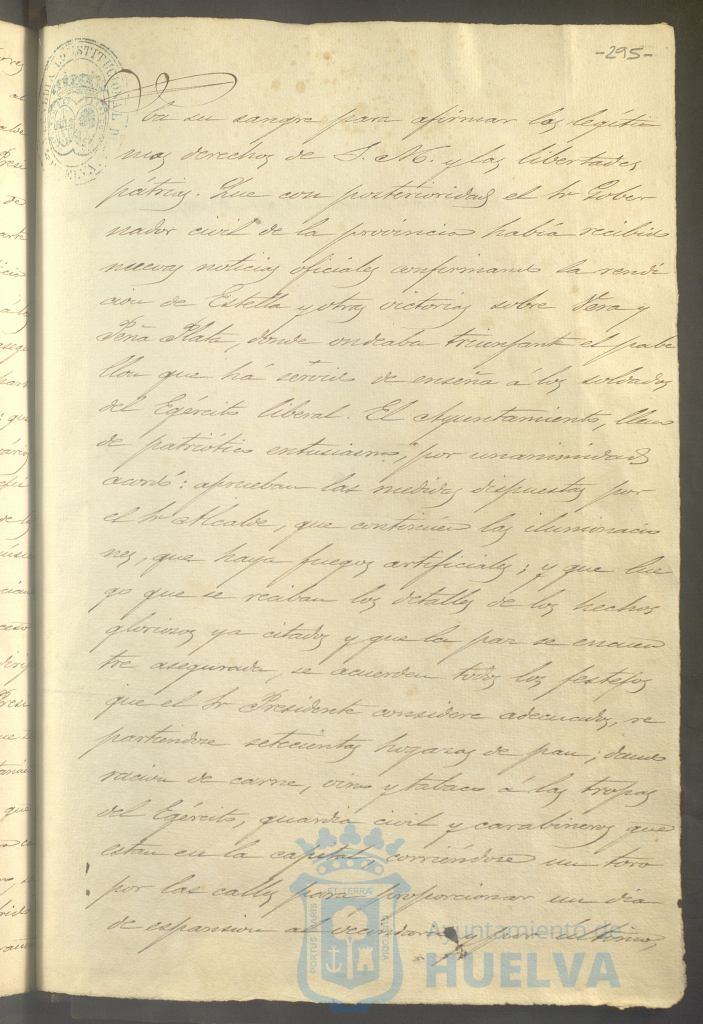 -295-
va su sangre para afirmar los legíti
mos derechos de S. M. y las libertades
pátrias. Que con posterioridad el Sr Gober
nador civil de la provincia había recibido
nuevas noticias oficiales confirmando la rendi
cion de Estella y otras victorias sobre Vera y
Peña Plata, donde ondeaba triunfante el pabe
llon que há servido de enseña á los soldados
del Egército liberal. El Ayuntamiento, lleno
de patriótico entusiasmo, por unanimidad
acordó: aprueban las medidas dispuestas por
el Sr Alcalde, que continúen las iluminacio
nes, que haya fuegos artificiales; y que lue
go que se reciban los detalles de los hechos
gloriosos ya citados y que la paz se encuen
tre asegurada, se acuerden todos los festejos
que el Sr Presidente considere adecuados, re
partiendose setecientas hogazas de pan; dando
racion de carne, vino y tabaco á las tropas
del Egército, guardia civil y carabineros que
estan en la capital, corriéndose un toro
por las calles para proporcionar un dia
de espansion al vecindario y por último,
Ayuntamiento de
HUELVA
PORTUS MARIS
ET TERRÆ
CUSTODIA